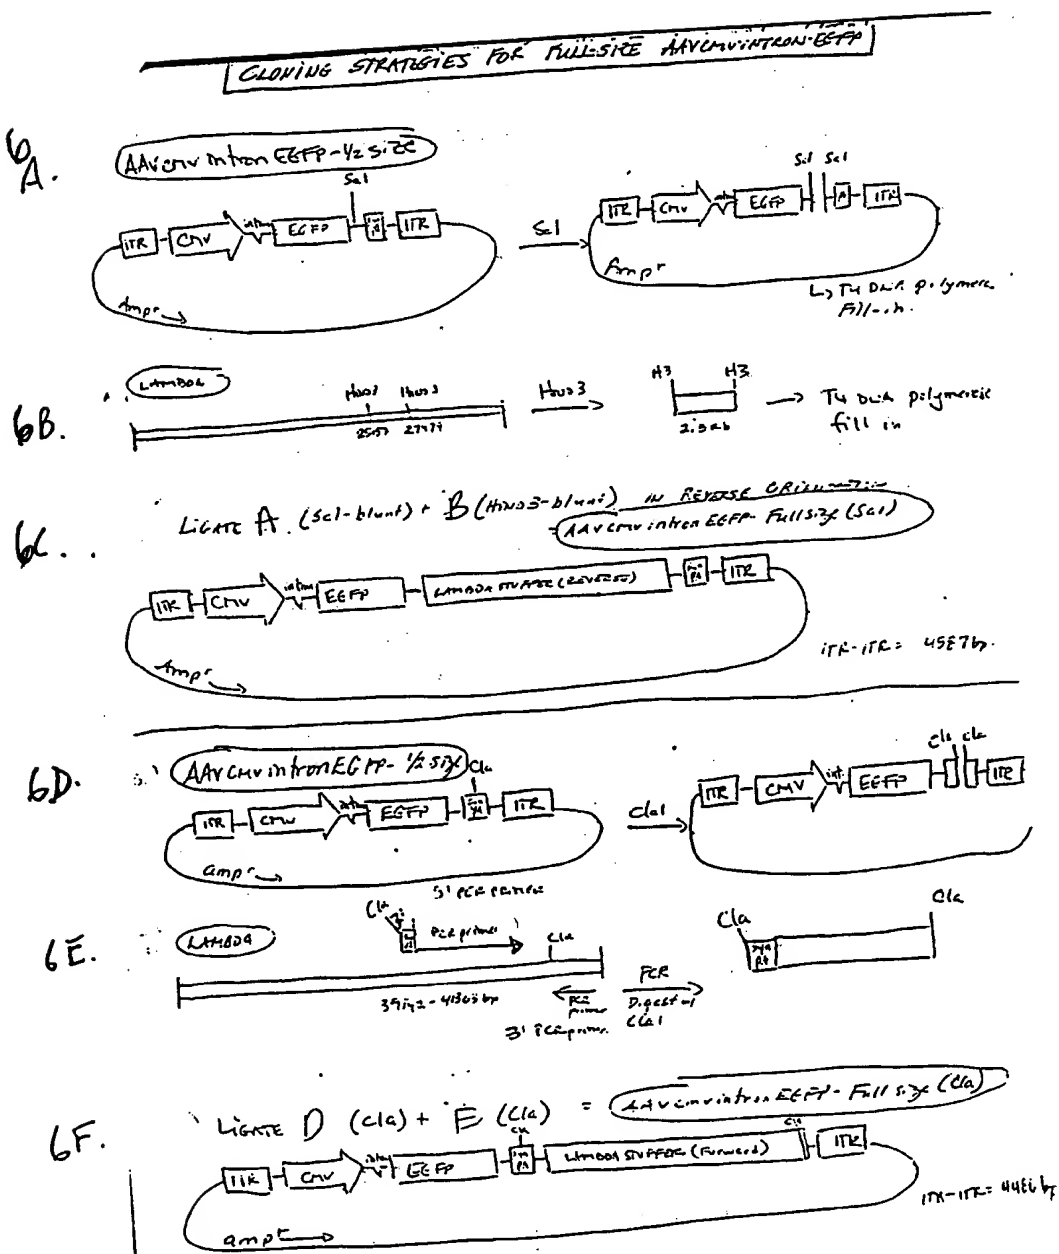 CLONING STRATEGIES FOR FULL-SIZE AAVCMVINTRON-EGFP
6A.
AAVCMV intron EGFP - 1/2 size
Sal
ITR CMV EGFP ITR
Ampr
Sal
Sal Sal
ITR CMV EGFP ITR
Ampr
T4 DNA polymerase
Fill-in.
6B.
LAMBDA
Hind3 Hind3
Hind3
H3 H3
T4 DNA polymerase
fill in
6C.
LIGATE A (Sal-blunt) + B (Hind3-blunt) IN REVERSE ORIENTATION
= AAVCMVintron EGFP - Full size (Sal)
ITR CMV intron EGFP LAMBDA STUFFER (REVERSE) ITR
Ampr
ITR-ITR =
6D.
AAVCMVintronEGFP - 1/2 size
Cla
ITR CMV EGFP ITR
ampr
Cla1
Cla Cla
ITR CMV int EGFP ITR
6E.
5' PCR PRIMER
LAMBDA
Cla
PCR primer
Cla
PCR primer
3' PCR primer
PCR
Digest w/
Cla1
Cla Cla
6F.
LIGATE D (Cla) + E (Cla) = AAVcmvintron EGFP - Full size (Cla)
Cla
ITR CMV EGFP LAMBDA STUFFER (Forward) ITR
ampr